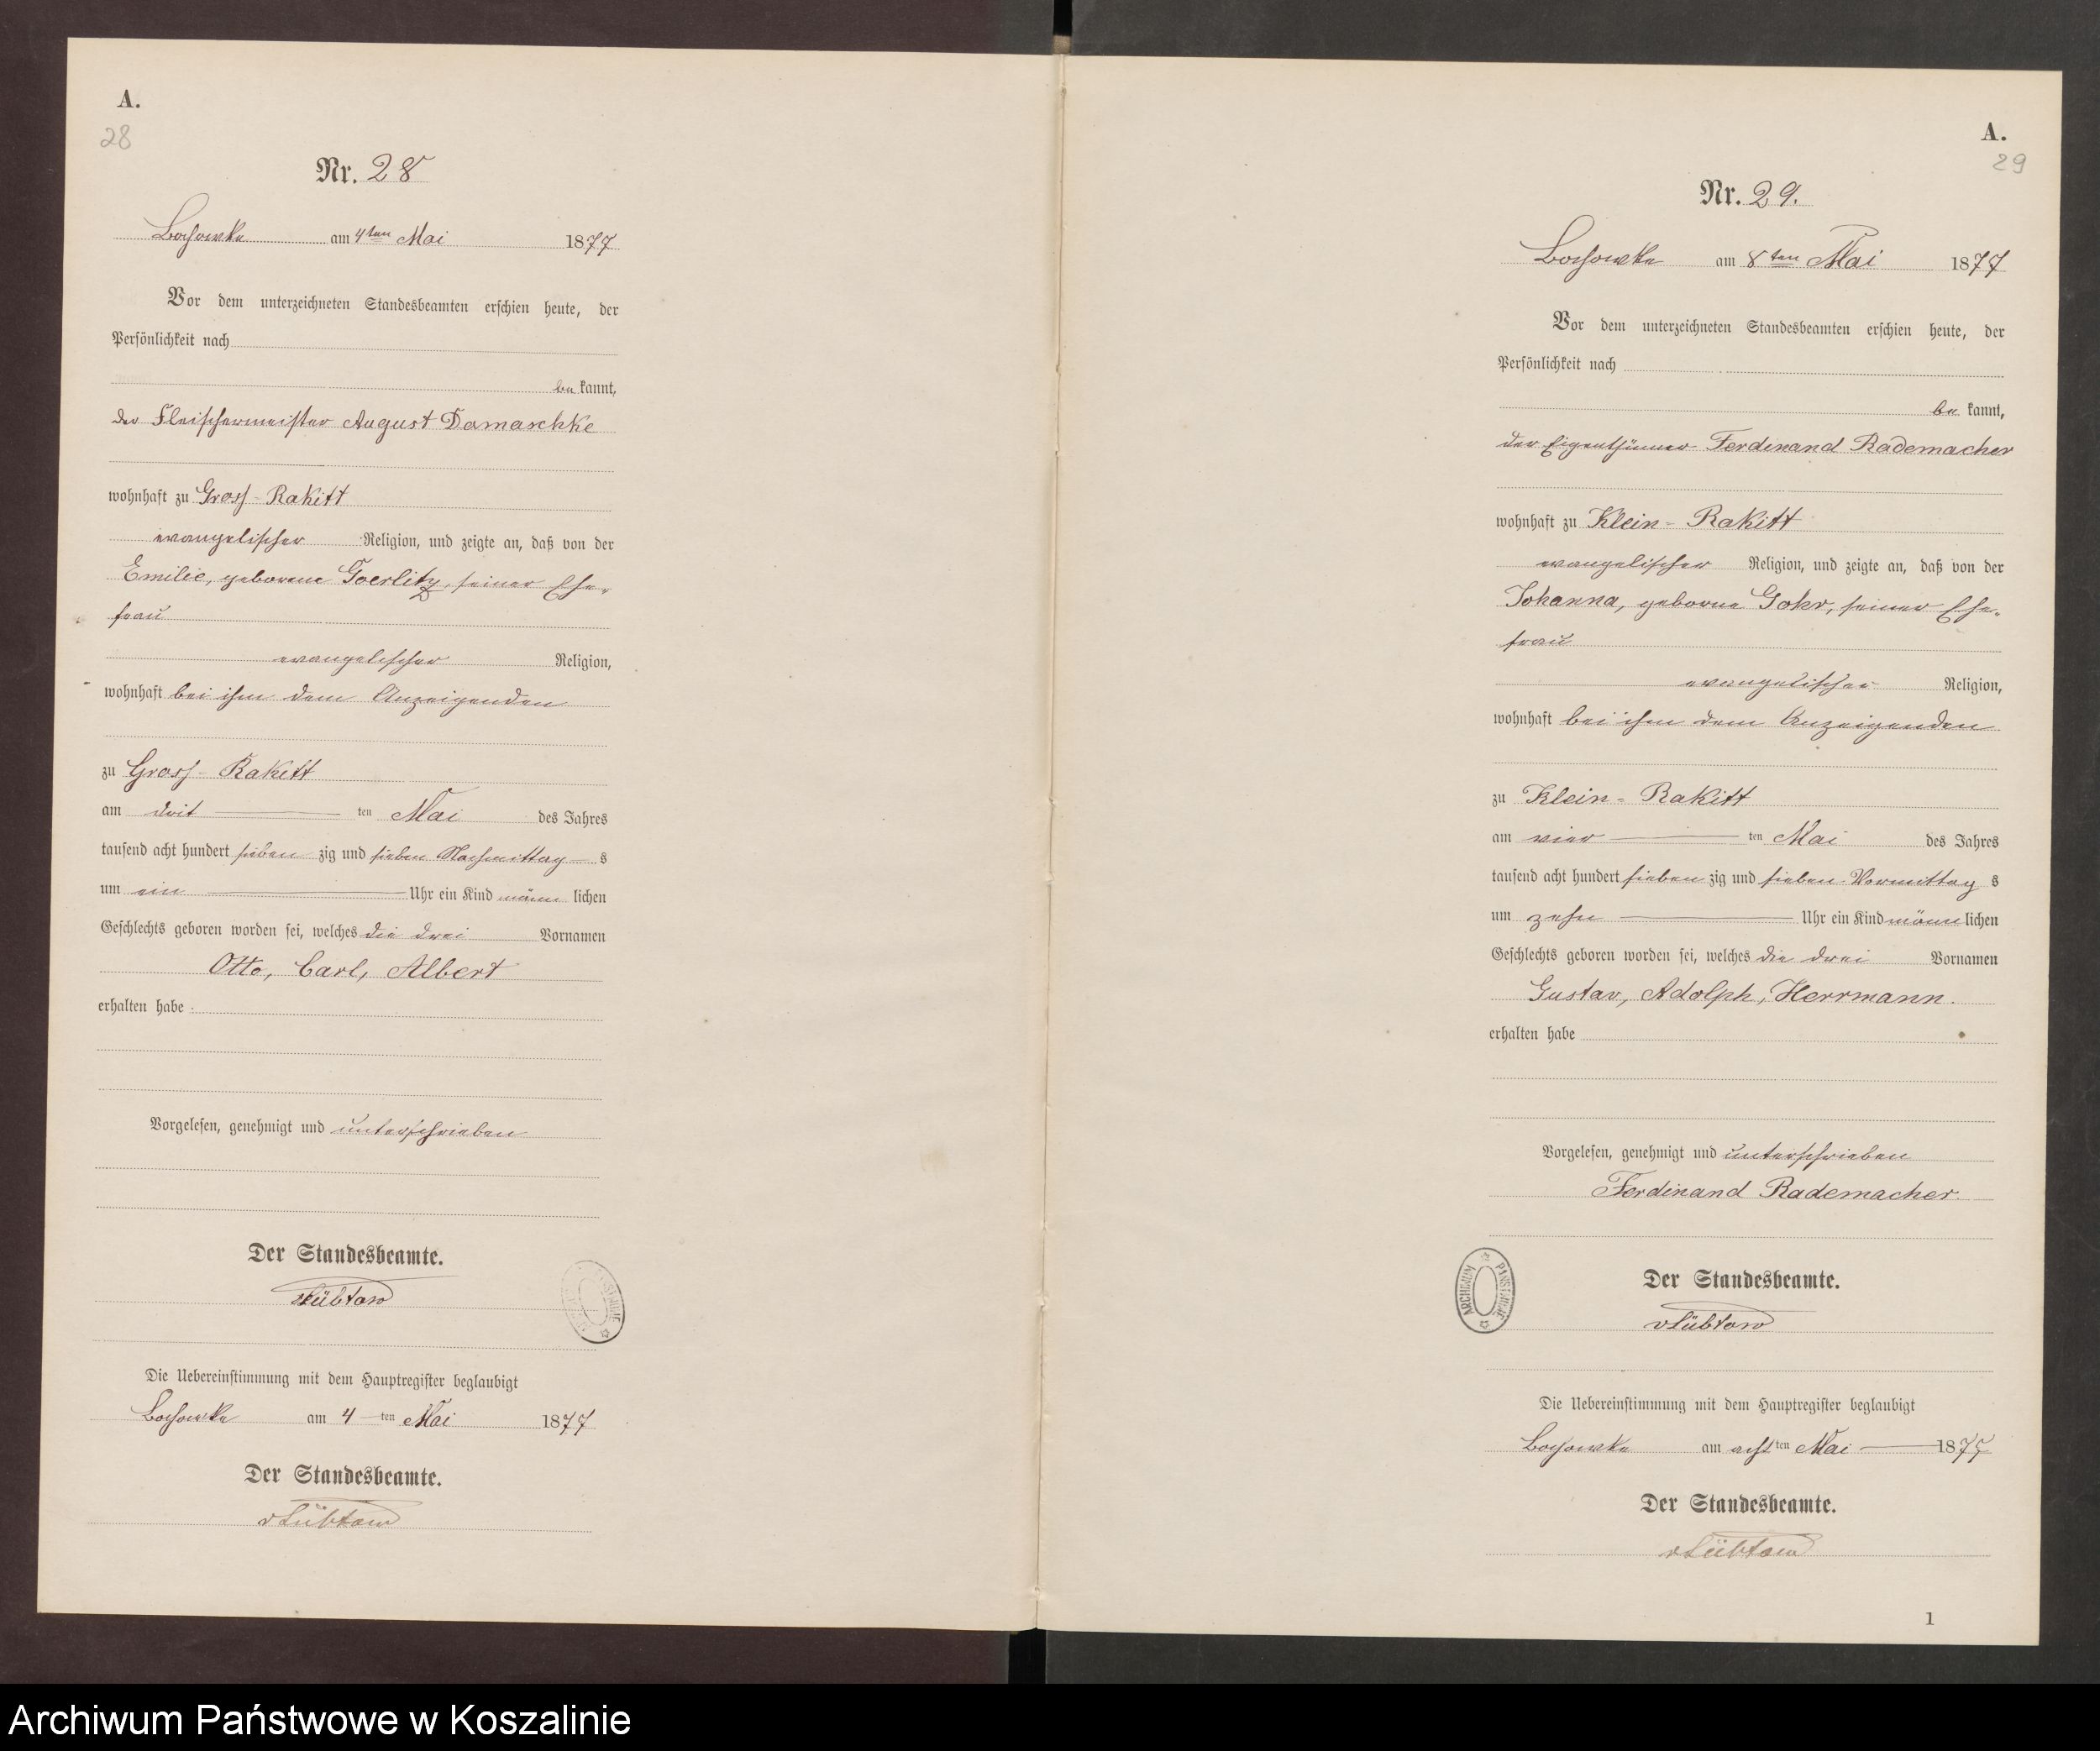 A.
28
Nr. 28
Bochowke am 4ten Mai 1877
Vor dem unterzeichneten Standesbeamten erschien heute, der
Persönlichkeit nach
be kannt,
der Fleischermeister August Damaschke
wohnhaft zu Gross-Rakitt
evangelischer Religion, und zeigte an, daß von der
Emilie, geborene Goerlitz, seiner Ehe-
frau
evangelischer Religion,
wohnhaft bei ihm dem Anzeigenden
zu Gross-Rakitt
am drit ten Mai des Jahres
tausend acht hundert sieben zig und sieben Nachmittag s
um ein Uhr ein Kind männ lichen
Geschlechts geboren worden sei, welches die drei Vornamen
Otto, Carl, Albert
erhalten habe
Vorgelesen, genehmigt und unterschrieben
Der Standesbeamte.
vLübtow
Die Uebereinstimmung mit dem Hauptregister beglaubigt
Bochowke am 4 ten Mai 1877
Der Standesbeamte.
vLübtow
A.
29
Nr. 29.
Bochowke am 8ten Mai 1877
Vor dem unterzeichneten Standesbeamten erschien heute, der
Persönlichkeit nach
be kannt,
der Eigenthümer Ferdinand Rademacher
wohnhaft zu Klein-Rakitt
evangelischer Religion, und zeigte an, daß von der
Johanna, geborne Gohr, seiner Ehe-
frau
evangelischer Religion,
wohnhaft bei ihm dem Anzeigenden
zu Klein-Rakitt
am vier ten Mai des Jahres
tausend acht hundert sieben zig und sieben Vormittag s
um zehn Uhr ein Kind männ lichen
Geschlechts geboren worden sei, welches die drei Vornamen
Gustav, Adolph, Herrmann.
erhalten habe
Vorgelesen, genehmigt und unterschrieben
Ferdinand Rademacher
ARCHIWUM PAŃSTWOWE
Der Standesbeamte.
vLübtow
Die Uebereinstimmung mit dem Hauptregister beglaubigt
Bochowke am acht ten Mai 1877
Der Standesbeamte.
vLübtow
1
Archiwum Państwowe w Koszalinie